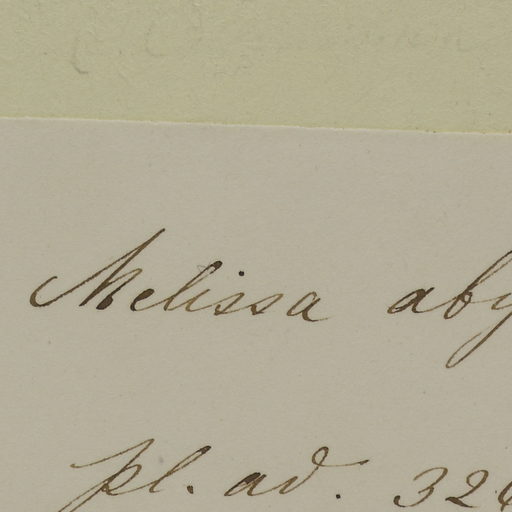 Melissa aby
pl. ad. 326